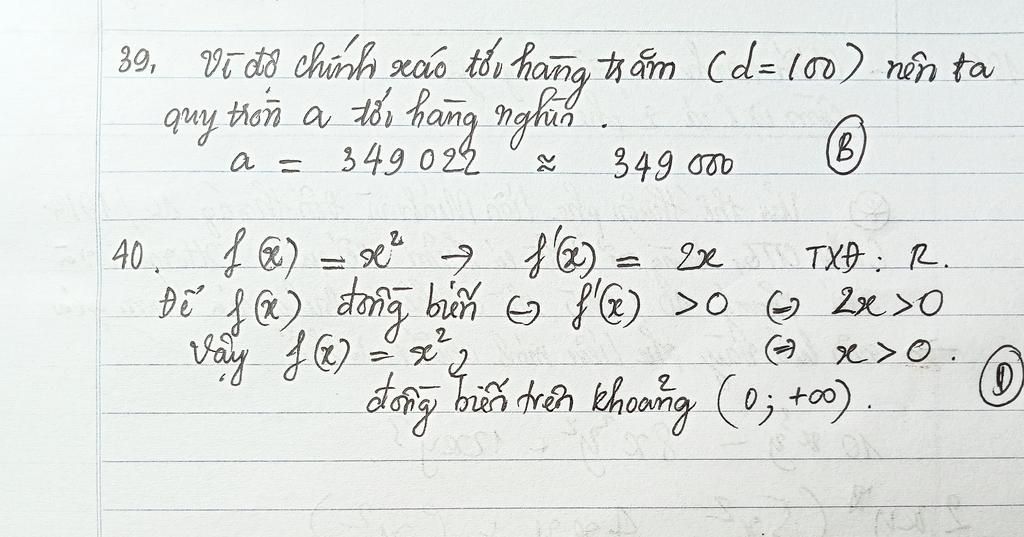 39. Vì độ chính xác tới hàng trăm (d=100) nên ta
quy tròn a tới hàng nghìn.
a = 349 022 ≈ 349 000 (B)
40. f(x) = x² → f'(x) = 2x TXĐ: R.
Để f(x) đồng biến ⇔ f'(x) > 0 ⇔ 2x > 0
Vậy f(x) = x² ⇔ x > 0.
đồng biến trên khoảng (0; +∞). (D)